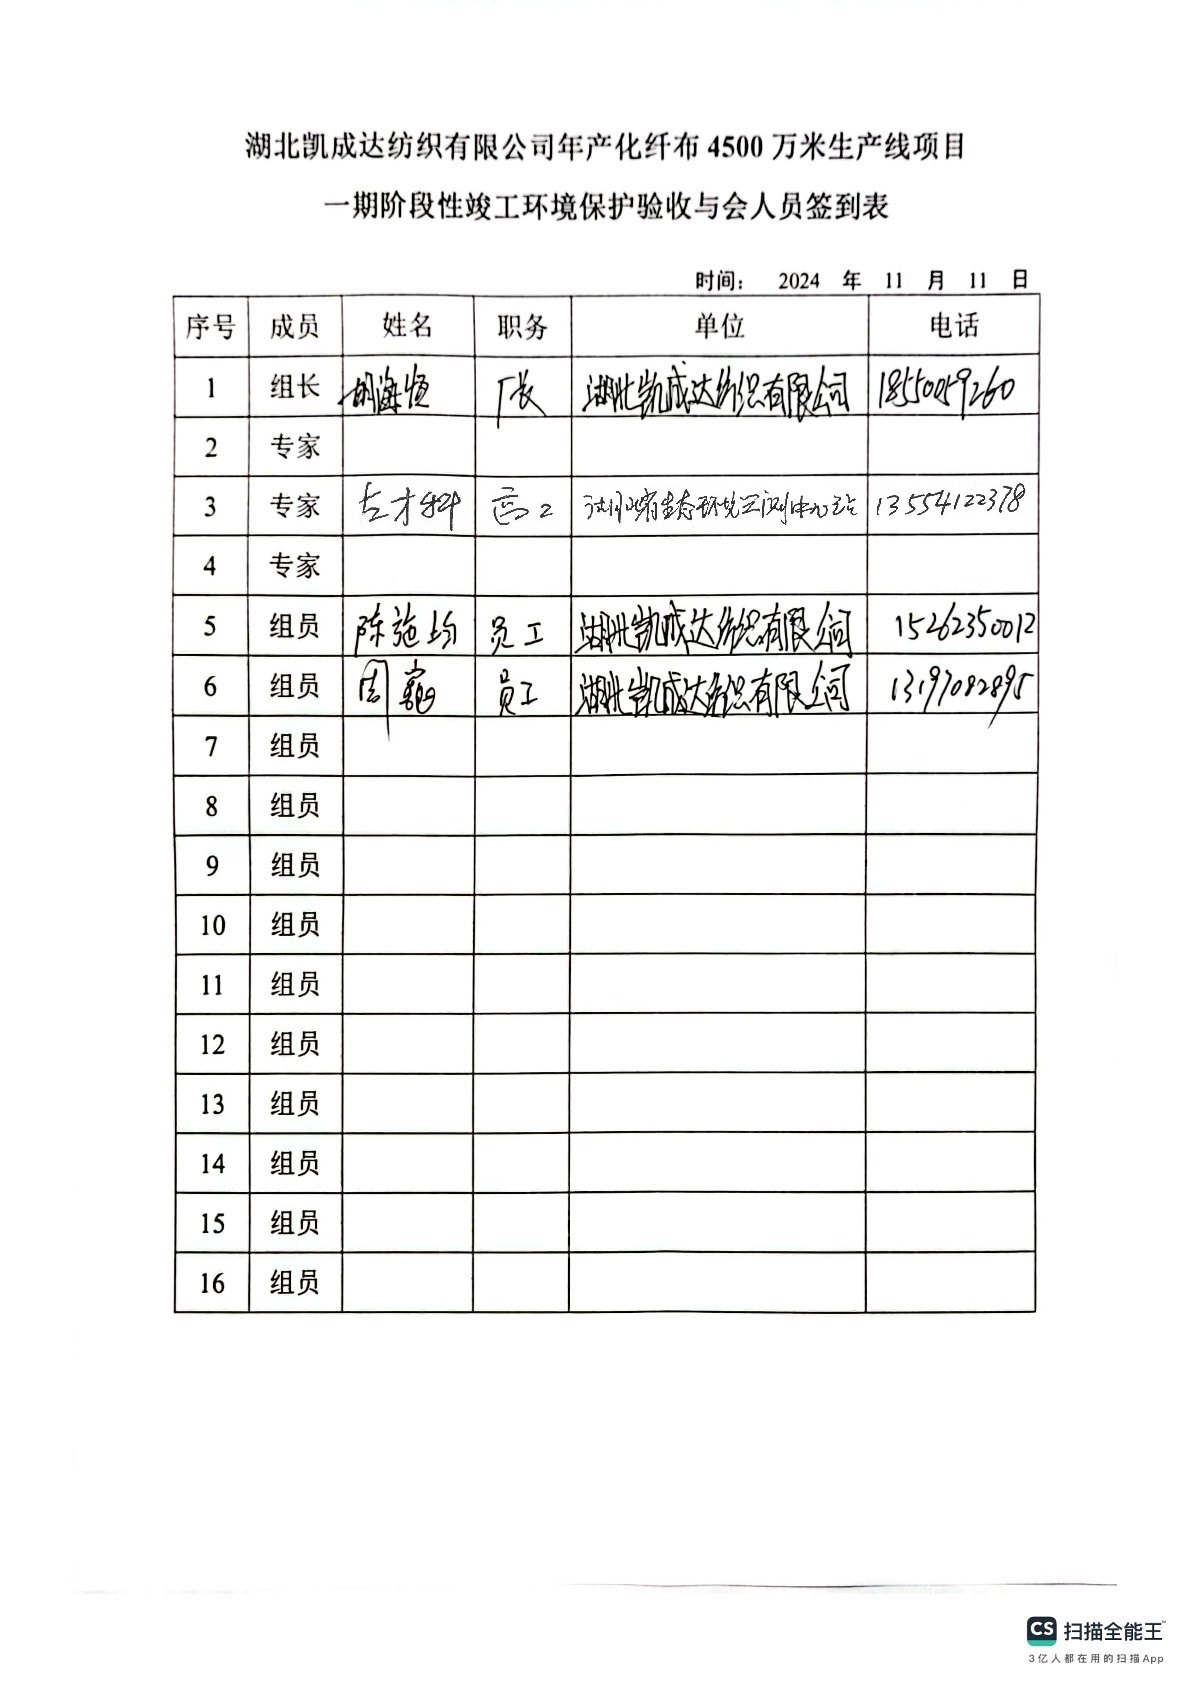 湖北凯成达纺织有限公司年产化纤布 4500 万米生产线项目
一期阶段性竣工环境保护验收与会人员签到表
时间： 2024 年 11 月 11 日
序号 成员 姓名 职务 单位 电话
1 组长 胡海恒 厂长 湖北凯成达纺织有限公司 18550059260
2 专家
3 专家 高工 湖北省生态环境监测中心站 13554122378
4 专家
5 组员 陈施均 员工 湖北凯成达纺织有限公司 15262350012
6 组员 周 员工 湖北凯成达纺织有限公司 13197082895
7 组员
8 组员
9 组员
10 组员
11 组员
12 组员
13 组员
14 组员
15 组员
16 组员
CS 扫描全能王
3亿人都在用的扫描App